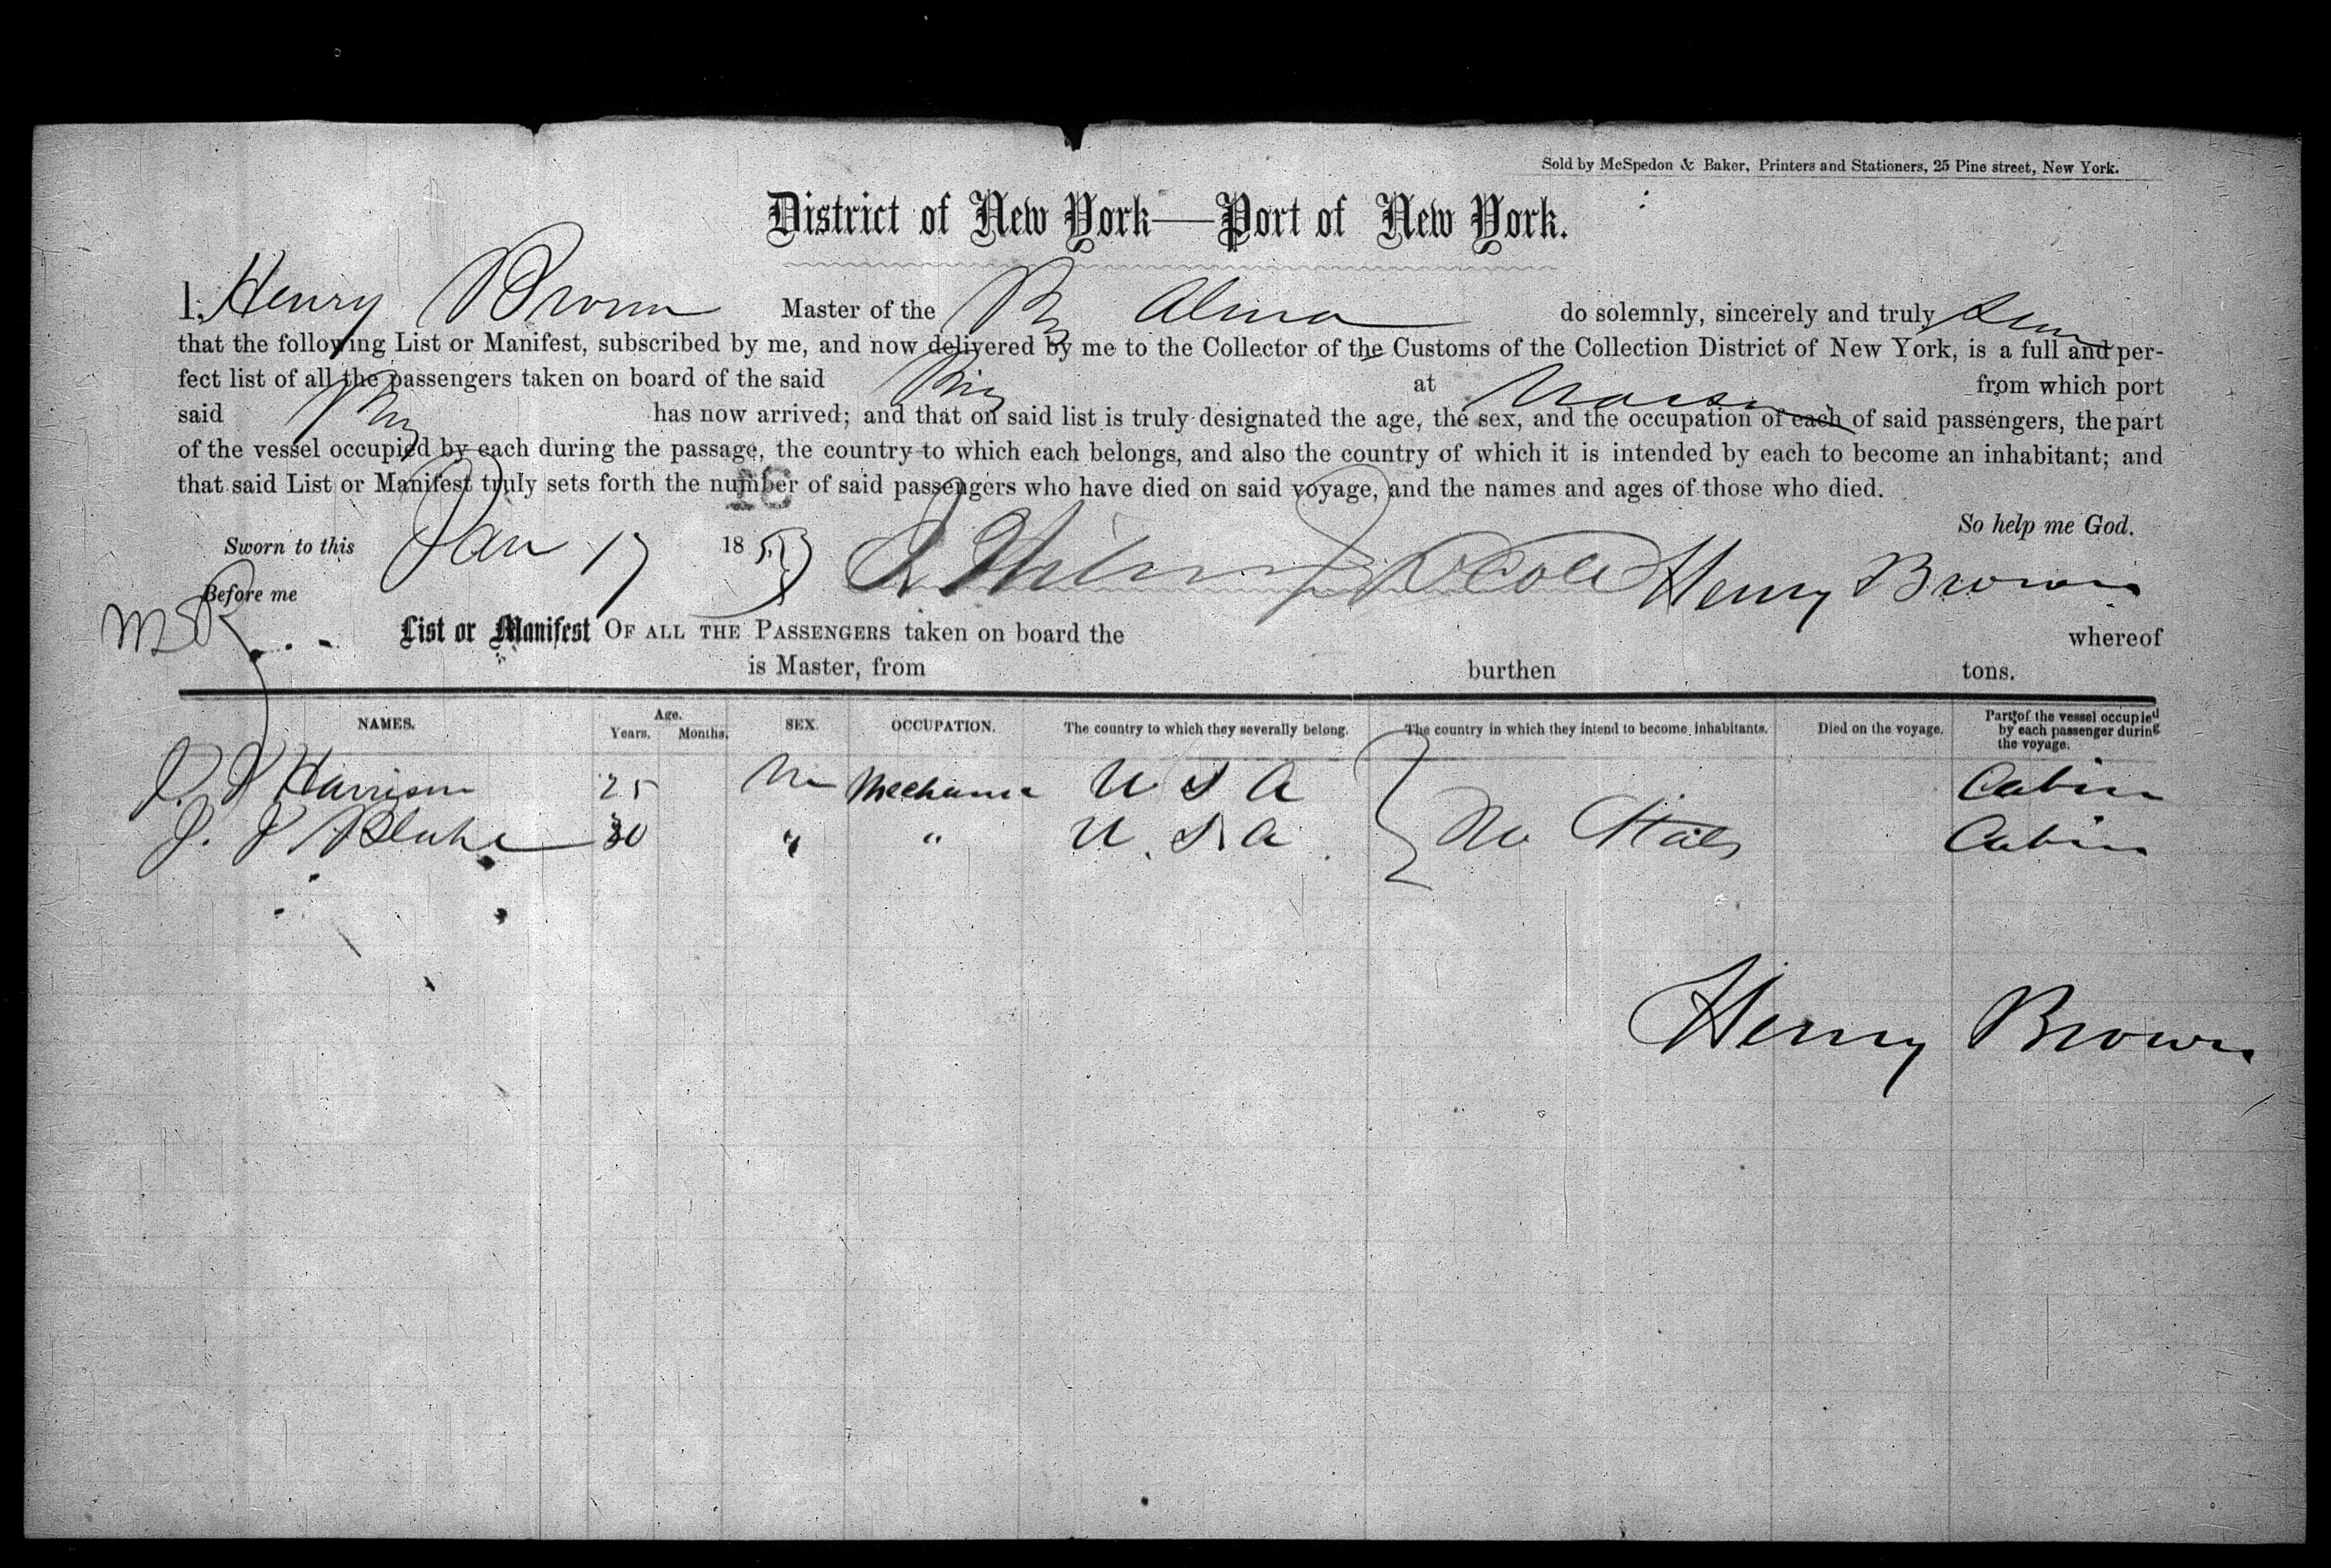 Sold by McSpedon & Baker, Printers and Stationers, 25 Pine street, New York.
District of New York—Port of New York.
I, Henry Brown Master of the Brig Alma do solemnly, sincerely and truly
that the following List or Manifest, subscribed by me, and now delivered by me to the Collector of the Customs of the Collection District of New York, is a full and per-
fect list of all the passengers taken on board of the said Brig at from which port
said Brig has now arrived; and that on said list is truly designated the age, the sex, and the occupation of each of said passengers, the part
of the vessel occupied by each during the passage, the country to which each belongs, and also the country of which it is intended by each to become an inhabitant; and
that said List or Manifest truly sets forth the number of said passengers who have died on said voyage, and the names and ages of those who died.
So help me God.
Sworn to this Jan 17 18 Henry Brown
Before me
List or Manifest OF ALL THE PASSENGERS taken on board the whereof
is Master, from burthen tons.
NAMES. Age. Years. Months. SEX. OCCUPATION. The country to which they severally belong. The country in which they intend to become inhabitants. Died on the voyage. Part of the vessel occupied by each passenger during the voyage.
Harrison 25 M Mechanic U S A Cabin
J. 30 " " U.S.A. Cabin
Henry Brown